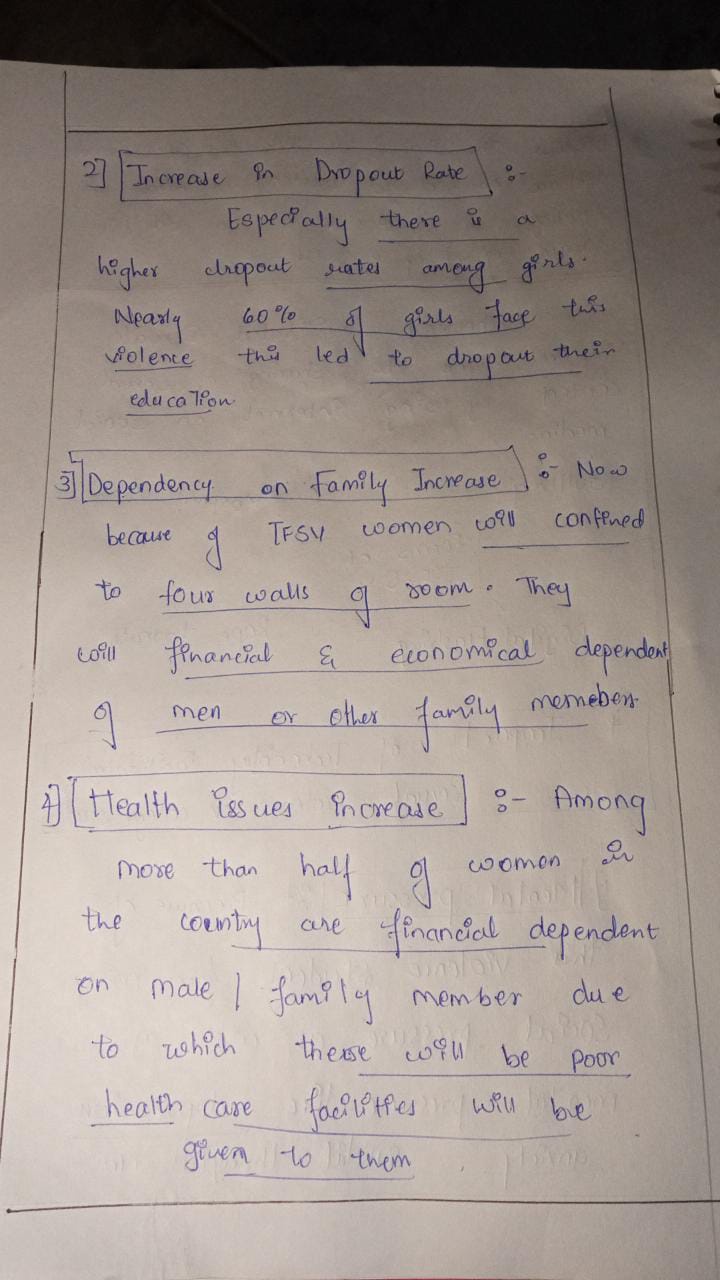 2] Increase in Dropout Rate :-
Especially there is a
higher dropout rates among girls.
Nearly 60% of girls face this
violence this led to dropout their
education
3] Dependency on Family Increase :- Now
because of TFSV women will confined
to four walls of room. They
will financial & economical dependent
of men or other family memebers.
4] Health issues increase :- Among
more than half of women in
the country are financial dependent
on male / family member due
to which these will be poor
health care facilities will be
given to them